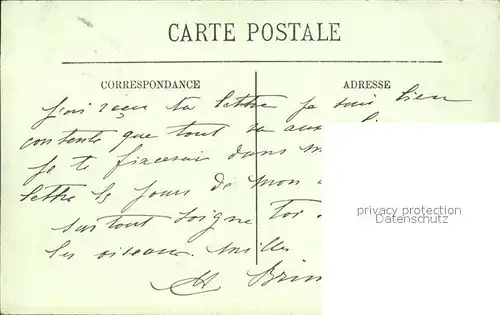 CARTE POSTALE
CORRESPONDANCE
ADRESSE
J'ai reçu ta lettre je suis bien
contente que tout va
je te dans
lettre le jour de mon
surtout soigne toi
les oiseaux. Mille
privacy protection
Datenschutz